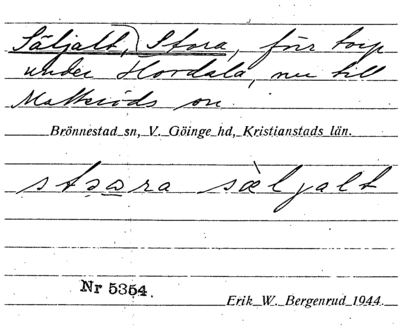 Säljalt, Stora, förr torp
under Hovdala, nu till
Mattsröds
Brönnestad sn, V. Göinge hd, Kristianstads län.
stɔara sæljalt
Nr 5354.
Erik W. Bergenrud 1944.